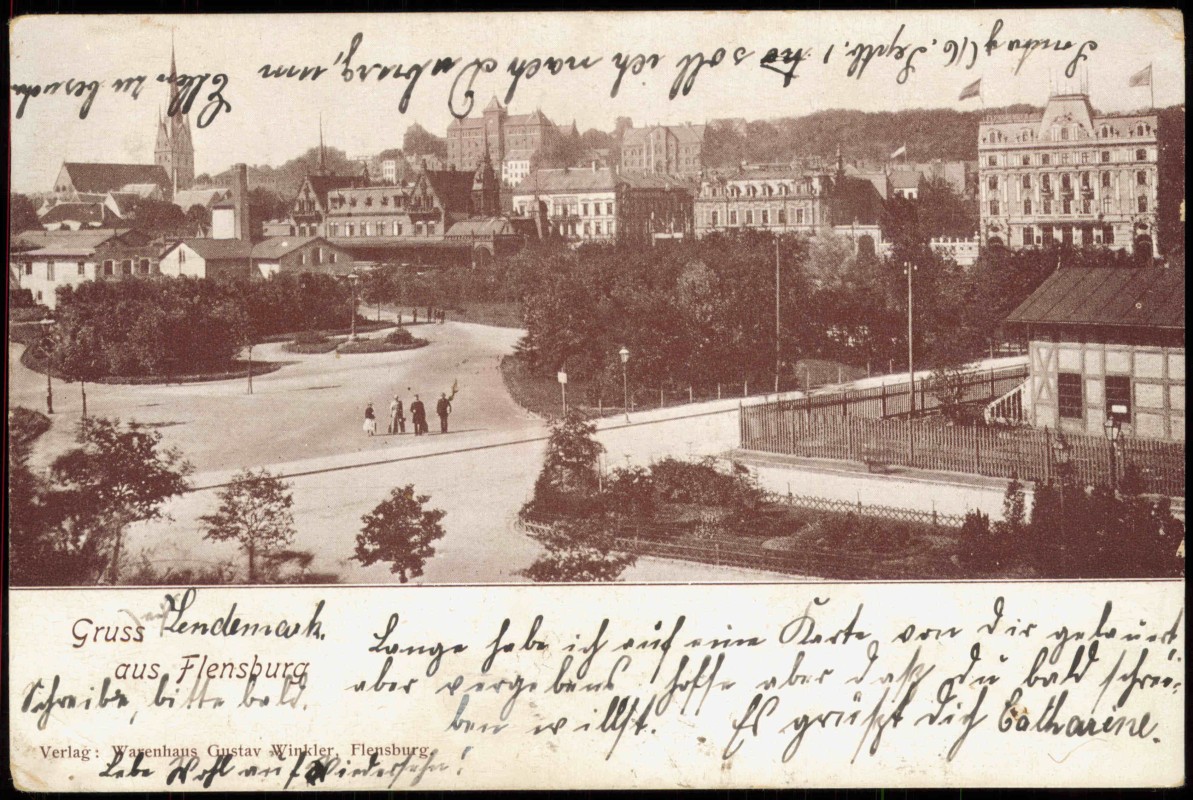 Sonntag (16. Septb.) soll ich nach um Ellen zu besuchen
Gruss Lendemark.
aus Flensburg
Lange habe ich auf eine Karte von Dir gelauert,
aber vergebens. hoffe aber daß du bald schrei-
ben willst. Es grüßt Dich Catharine.
Schreibe, bitte bald.
Verlag: Warenhaus Gustav Winkler, Flensburg.
Lebe Wohl auf Wiedersehn!